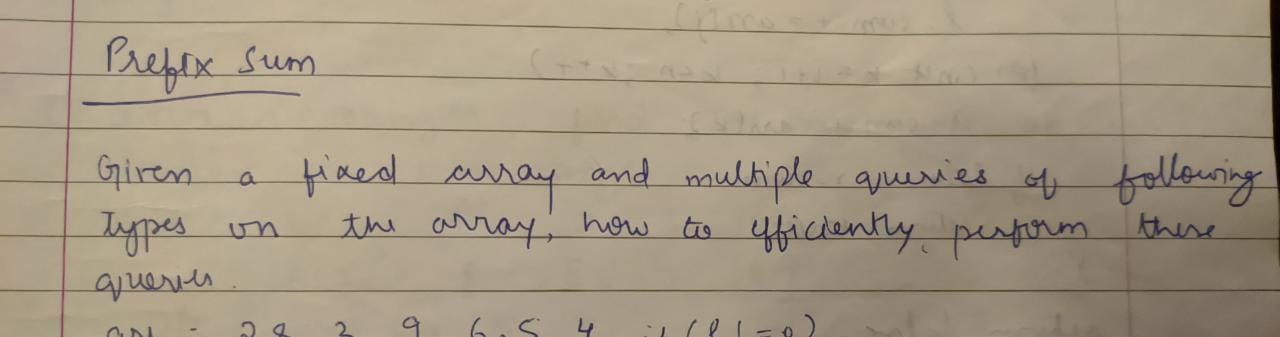 Prefix Sum
Given a fixed array and multiple queries of following
types on the array, how to efficiently perform these
queries.
2 8 3 9 6 5 4